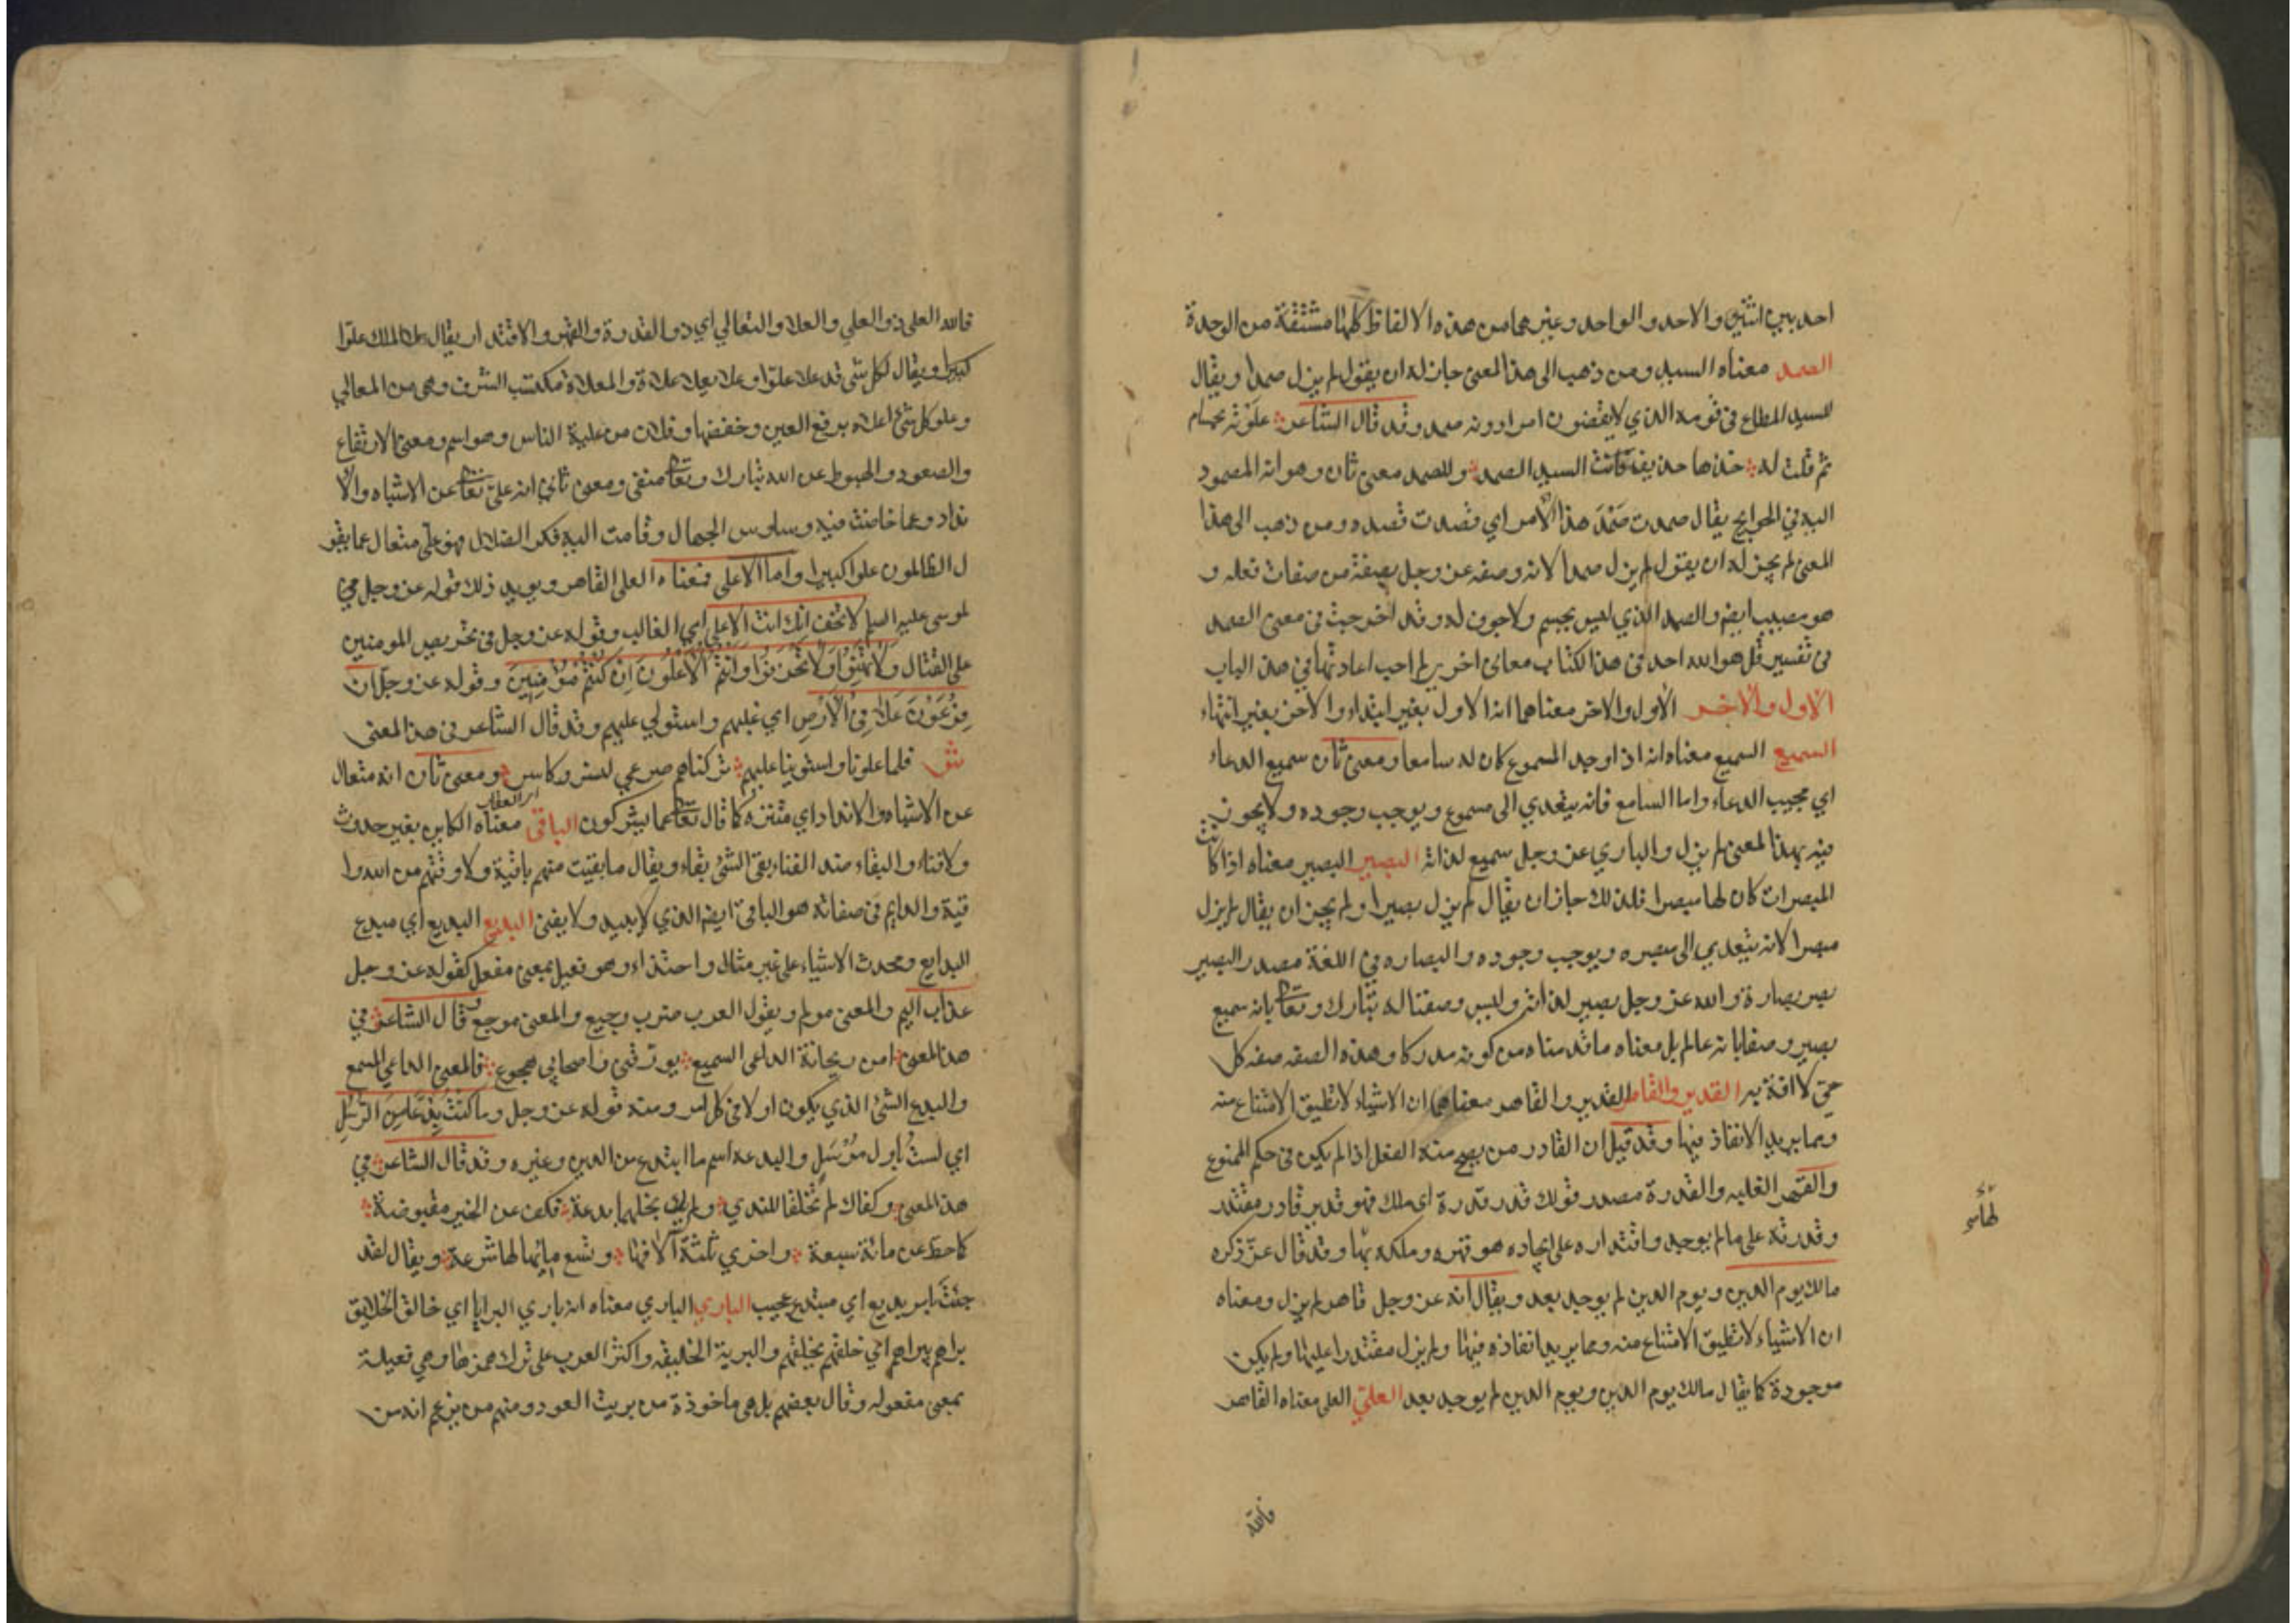 احد بين اثنين والاحد والواحد وغيرهما من هذه الالفاظ كلها مشتقة من الوحدة
الصمد معناه السيد ومن ذهب الى هذا المعنى جاز له ان يقول لم يزل صمدا ويقال
للسيد المطاع في قومه الذي لا يقضون امرا دونه صمد وقد قال الشاعر علوته بحسام
ثم قلت له خذها حذيف فانت السيد الصمد وللصمد معنى ثان وهو انه المصمود
اليه في الحوايج يقال صمدت صَمْدَ هذا الامر اي قصدت قصده ومن ذهب الى هذا
المعنى لم يجز له ان يقول لم يزل صمدا لانه وصفه عز وجل بصفة من صفات فعله و
هو مصيب ايضا والصمد الذي ليس بجسم ولا جوف له وقد اخرجت في معنى الصمد
في تفسير قل هو الله احد في هذا الكتاب معاني اخر لم احب اعادتها في هذا الباب
الاول والاخر الاول والاخر معناهما انه الاول بغير ابتداء والاخر بغير انتهاء
السميع السميع معناه انه اذا وجد المسموع كان له سامعا ومعنى ثان سميع الدعاء
اي مجيب الدعاء واما السامع فانه يتعدي الى مسموع ويوجب وجوده ولا يجوز
فيه بهذا المعنى لم يزل والباري عز وجل سميع لذاته البصير البصير معناه اذا كانت
المبصرات كان لها مبصرا فلذلك جاز ان يقال لم يزل بصيرا ولم يجز ان يقال لم يزل
مبصرا لانه يتعدي الى مبصره ويوجب وجوده والبصاره في اللغة مصدر البصير
بصر بصارة والله عز وجل بصير لذاته وليس وصفنا له تبارك وتعالى بانه سميع
بصير وصفا بانه عالم بل معناه ما قدمناه من كونه مدركا وهذه الصفه صفه كل
حي لا افة به القدير والقاهر القدير والقاهر معناهما ان الاشياء لا تطيق الامتناع منه
ومما يريد الانفاذ فيها وقد قيل ان القادر من يصح منه الفعل اذا لم يكن في حكم الممنوع
والقهر الغلبه والقدرة مصدر قولك قدر قدرة اي ملك فهو قدير قادر مقتدر
وقدرته على ما لم يوجد واقتداره على ايجاده هو قهره وملكه لها وقد قال عز ذكره
مالك يوم الدين ويوم الدين لم يوجد بعد ويقال انه عز وجل قاهر لم يزل ومعناه
ان الاشياء لا تطيق الامتناع منه ومما يريد انفاذه فيها ولم يزل مقتدرا عليها ولم يكن
موجودة كما يقال مالك يوم الدين ويوم الدين لم يوجد بعد العلي العلي معناه القاهر
فالله
فالله العلي ذو العلي والعلا والتعالي اي ذو القدرة والقهر والاقتدار يقال علا الملك علوا
كبيرا ويقال لكل شي قد علا علوا وعلا يعلا علاة والمعلاة مكتسب الشرف وهي من المعالي
وعلو كل شئ اعلاه برفع العين وخفضها وفلان من علية الناس وهو اسم ومعنى الارتفاع
والصعود والهبوط عن الله تبارك وتعالى منفي ومعنى ثاني انه علي تعالى عن الاشباه والا
نداد وعما خاضت فيه وساوس الجهال وقامت اليه فكر الضلال فهو علي متعال عما يقو
ل الظالمون علوا كبيرا واما الاعلى فمعناه العلي القاهر ويويد ذلك قوله عز وجل
لموسى عليه السلم لا تخف انك انت الاعلى اي الغالب وقوله عز وجل في تحريص المومنين
على القتال وَلَا تَهِنُوا وَلَا تَحْزَنُوا وَاَنْتُمُ الْاَعْلَوْنَ اِنْ كُنْتُمْ مُؤْمِنِيْنَ وقوله عز وجل ان
فِرْعَوْنَ عَلَا فِي الْاَرْضِ اي غلبهم واستولي عليهم وقد قال الشاعر في هذا المعنى
شر فلما علونا واستوينا عليهم تركناهم صرعى لنسر وكاسر ومعنى ثان انه متعال
عن الاشباه والانداد اي متنزه كما قال تعالى عما يشركون الباقي معناه الكاين بغير حدوث
ولا فناء والبقاء ضد الفناء بقي الشئ بقاء ويقال ما بقيت منهم باقية ولا وقتهم من الله وا
قية والدايم في صفاته هو الباقي ايضا الذي لا يبيد ولا يفنى البديع البديع اي مبدع
البدايع ومحدث الاشياء على غير مثال واحتذاء وهو فعيل بمعنى مفعل كقوله عز وجل
عذاب اليم والمعنى مولم ويقول العرب ضرب وجيع والمعنى موجع وقال الشاعر في
هذا المعنى امن ريحانة الداعي السميع يورقني واصحابي هجوع فالمعنى الداعي المسمع
والبدع الشئ الذي يكون اولا في كل امر ومنه قوله عز وجل وما كنت بدعا من الرسل
اي لستُ باول مُرْسَلٍ والبدعه اسم ما ابتدع من الدين وغيره وقد قال الشاعر في
هذا المعنى وكفاك لم تخلقا للندي ولم يك بخلهما بدعة فكف عن الخير مقبوضة
كما حط عن مائة سبعة واخري ثلثة آلافها وتسع مايها لها شرعة ويقال لقد
جئت بامر بديع اي مبتدع عجيب الباري الباري معناه انه باري البرايا اي خالق الخلايق
براهم يبراهم اي خلقهم يخلقهم والبرية الخليقه واكثر العرب على ترك همزها وهي فعيلة
بمعنى مفعوله وقال بعضهم بل هي ماخوذة من بريت العود ومنهم من يزعم انه من